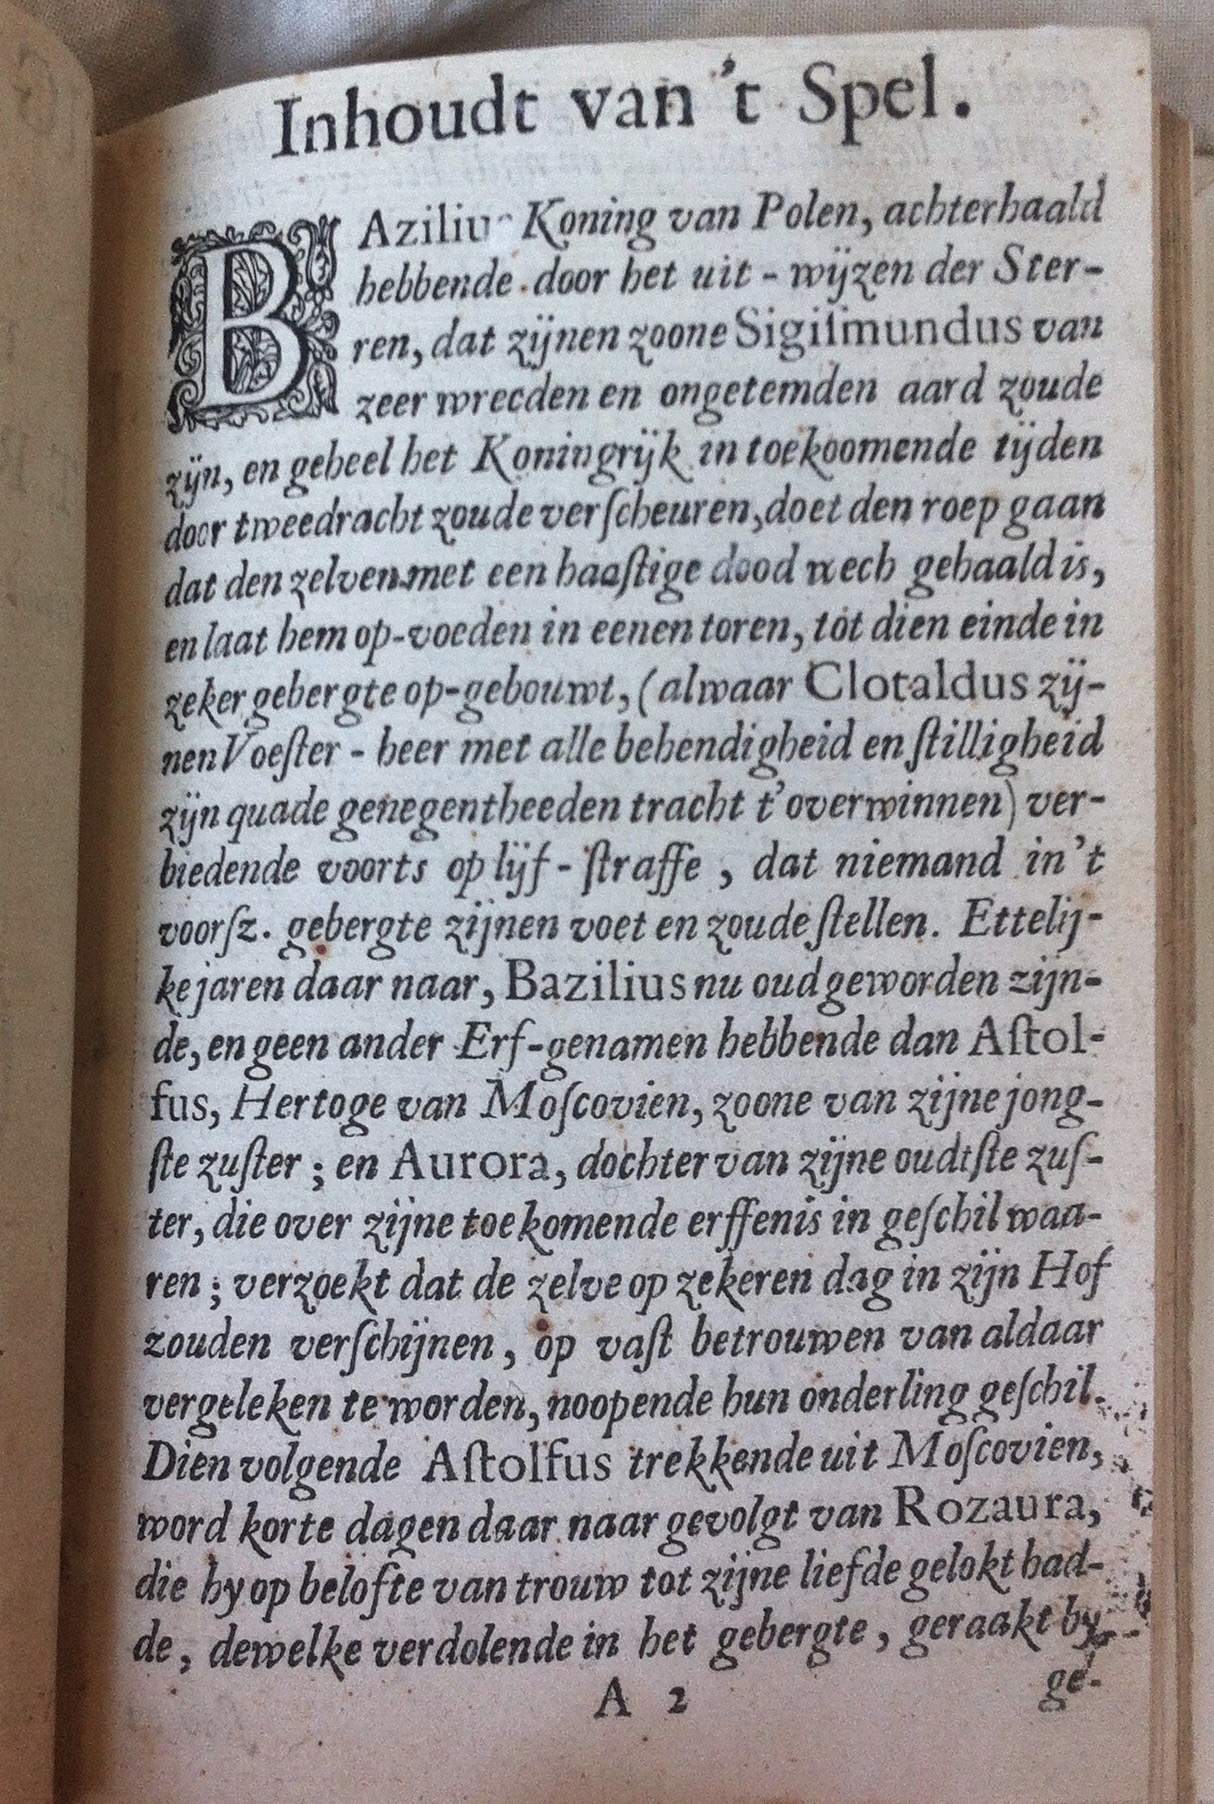 Inhoudt van 't Spel.
BAzilius Koning van Polen, achterhaald
hebbende door het uit-wijzen der Ster-
ren, dat zijnen zoone Sigiſmundus van
zeer wreeden en ongetemden aard zoude
zijn, en geheel het Koningrijk in toekoomende tijden
door tweedracht zoude verſcheuren, doet den roep gaan
dat den zelven met een haaſtige dood wech gehaald is,
en laat hem op-voeden in eenen toren, tot dien einde in
zeker gebergte op-gebouwt, (alwaar Clotaldus zij-
nen Voeſter-heer met alle behendigheid en ſtilligheid
zijn quade genegentheeden tracht t'overwinnen) ver-
biedende voorts op lijf-ſtraffe, dat niemand in't
voorſz. gebergte zijnen voet en zoude ſtellen. Ettelij-
ke jaren daar naar, Bazilius nu oud geworden zijn-
de, en geen ander Erf-genamen hebbende dan Aſtol-
fus, Hertoge van Moſcovien, zoone van zijne jong-
ſte zuſter; en Aurora, dochter van zijne oudtſte zuſ-
ter, die over zijne toekomende erffenis in geſchil waa-
ren; verzoekt dat de zelve op zekeren dag in zijn Hof
zouden verſchijnen, op vaſt betrouwen van aldaar
vergeleken te worden, noopende hun onderling geſchil.
Dien volgende Aſtolfus trekkende uit Moſcovien,
word korte dagen daar naar gevolgt van Rozaura,
die hy op belofte van trouw tot zijne liefde gelokt had-
de, dewelke verdolende in het gebergte, geraakt by
A 2 ge-